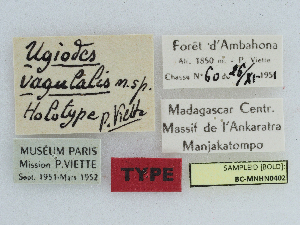 Ugiodes
vagulalis n. sp.
Holotype P. Viette
Forêt d'Ambahona
Alt. 1850 m. - P. Viette
Chasse N° 60 du 26/XI-1951
Madagascar Centr.
Massif de l'Ankaratra
Manjakatompo
MUSÉUM PARIS
Mission P. VIETTE
Sept. 1951-Mars 1952
TYPE
SAMPLEID [BOLD]:
BC-MNHN0402